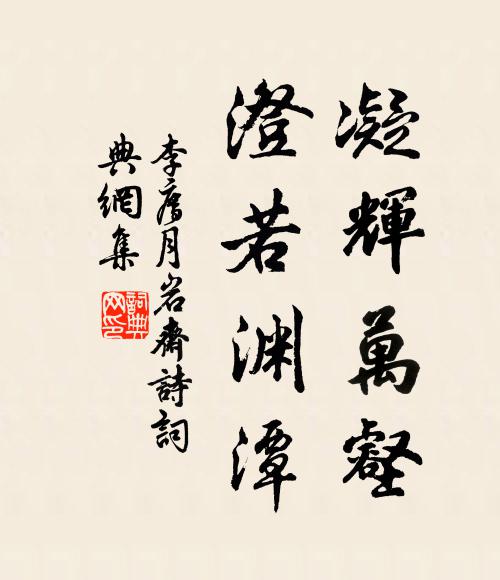 凝輝萬壑
澄若淵潭
李廌月岩齋詩詞
典網集
詞典
网印